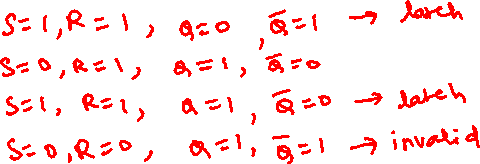 S=1, R=1, Q=0, Q̅=1 → latch
S=0, R=1, Q=1, Q̅=0
S=1, R=1, Q=1, Q̅=0 → latch
S=0, R=0, Q=1, Q̅=1 → invalid